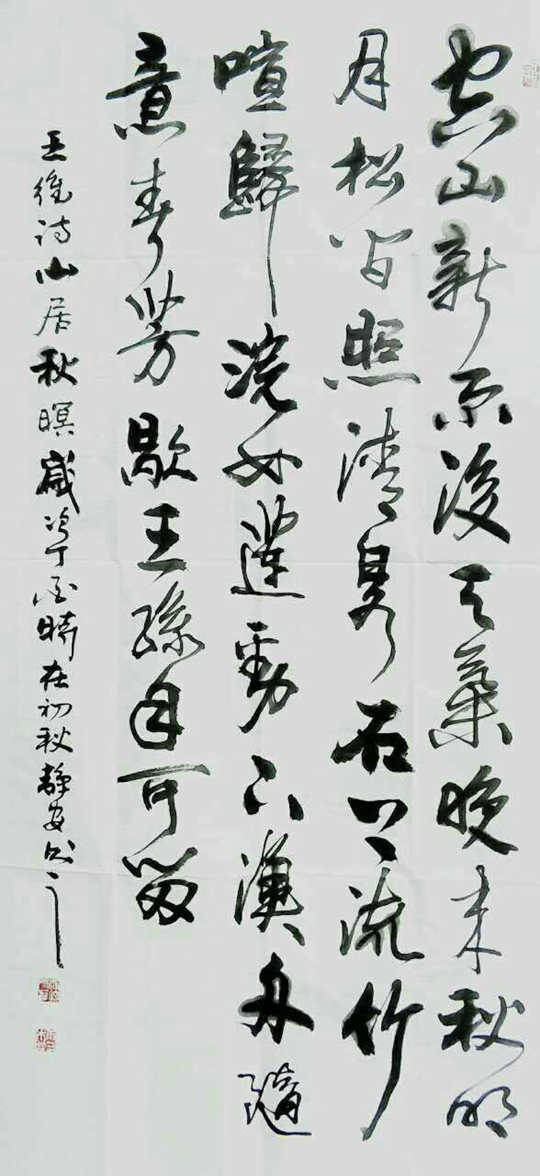 空山新雨後天氣晚来秋明
月松间照清泉石上流竹
喧歸浣女蓮動下漁舟隨
意春芳歇王孫自可留
王維诗山居秋暝歲次丁酉時在初秋靜安书之